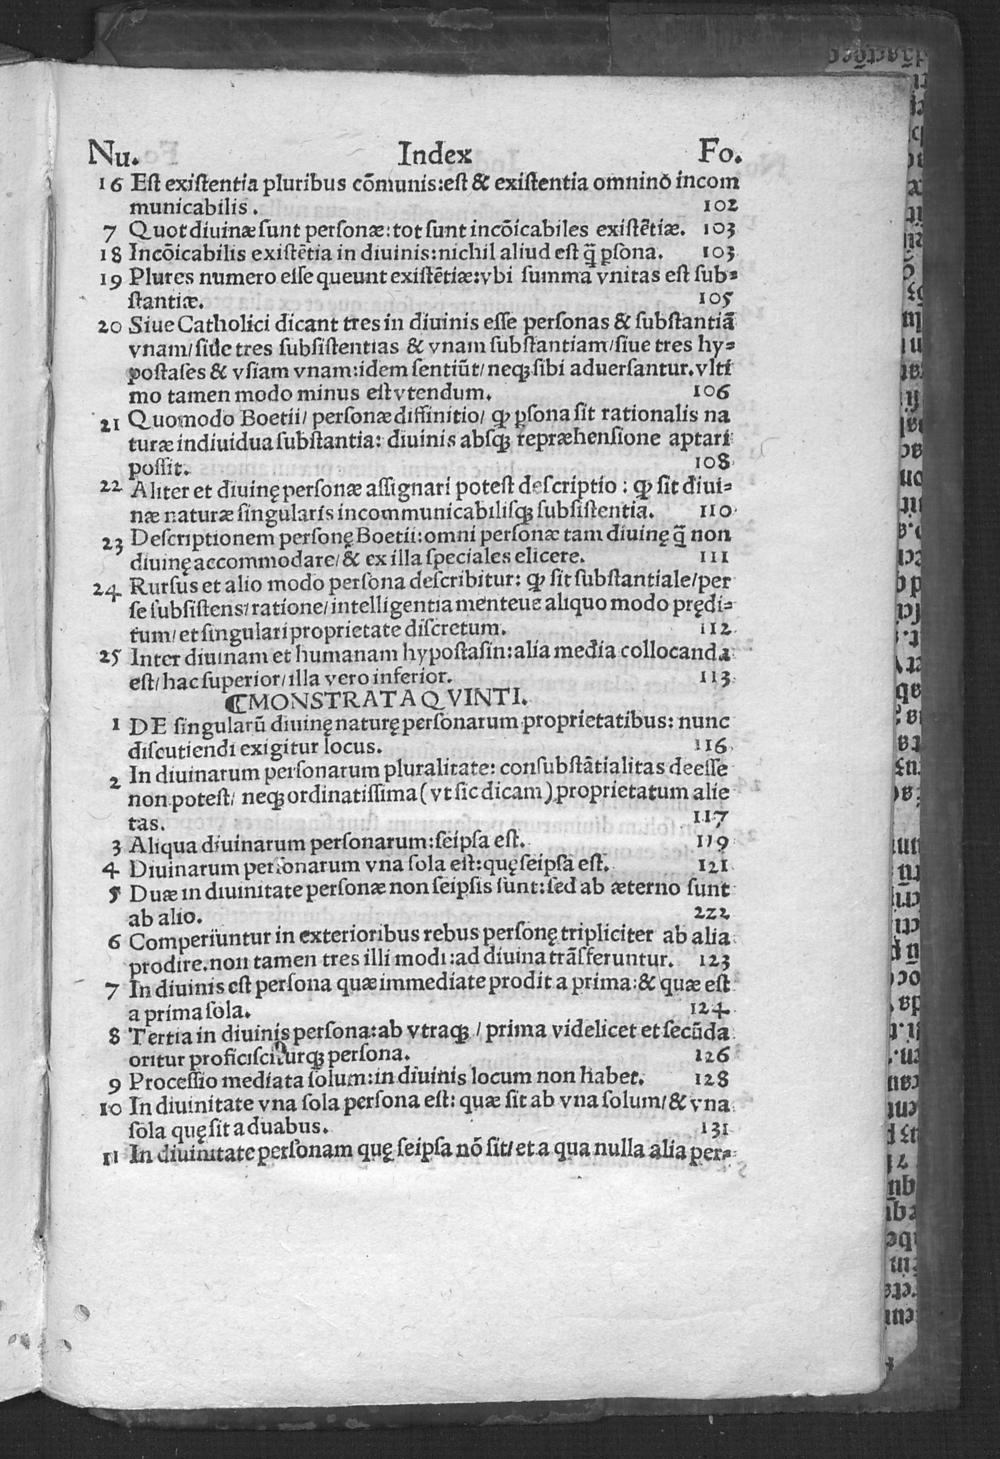 Nu. Index Fo.
16 Est existentia pluribus cōmunis:est & existentia omnino incom
municabilis. 102
7 Quot diuinæ sunt personæ:tot sunt incōicabiles existētiæ. 103
18 Incōicabilis existētia in diuinis:nichil aliud est q̄ psona. 103
19 Plures numero esse queunt existētiæ:vbi summa vnitas est sub-
stantiæ. 105
20 Siue Catholici dicant tres in diuinis esse personas & substantiā
vnam/siue tres subsistentias & vnam substantiam/siue tres hy-
postases & vsiam vnam:idem sentiūt/ neqꝫ sibi aduersantur.vlti
mo tamen modo minus est vtendum. 106
21 Quomodo Boetii/ personæ diffinitio/ ꝙ psona sit rationalis na
turæ indiuidua substantia: diuinis absqꝫ repræhensione aptari
possit. 108
22 Aliter et diuinę personæ assignari potest descriptio : ꝙ sit diui-
næ naturæ singularis incommunicabilisqꝫ subsistentia. 110
23 Descriptionem personę Boetii:omni personæ tam diuinę q̄ non
diuinę accommodare/& ex illa speciales elicere. 111
24 Rursus et alio modo persona describitur: ꝙ sit substantiale/per
se subsistens/ratione/intelligentia menteue aliquo modo prędi-
tum/et singulari proprietate discretum. 112
25 Inter diuinam et humanam hypostasin:alia media collocanda
est/hac superior/illa vero inferior. 113
⸿MONSTRATA QVINTI.
1 DE singularū diuinę naturę personarum proprietatibus: nunc
discutiendi exigitur locus. 116
2 In diuinarum personarum pluralitate: consubstātialitas deesse
non potest/ neqꝫ ordinatissima (vt sic dicam) proprietatum alie
tas. 117
3 Aliqua diuinarum personarum:seipsa est. 119
4 Diuinarum personarum vna sola est:quę seipsa est. 121
5 Duæ in diuinitate personæ non seipsis sunt:sed ab æterno sunt
ab alio. 222
6 Comperiuntur in exterioribus rebus personę tripliciter ab alia
prodire.non tamen tres illi modi:ad diuina trāsferuntur. 123
7 In diuinis est persona quæ immediate prodit a prima:& quæ est
a prima sola. 124
8 Tertia in diuinis persona:ab vtraqꝫ / prima videlicet et secūda
oritur proficisciturqꝫ persona. 126
9 Processio mediata solum:in diuinis locum non habet. 128
10 In diuinitate vna sola persona est: quæ sit ab vna solum/& vna
sola quę sit a duabus. 131
11 In diuinitate personam quę seipsa nō sit/et a qua nulla alia per-